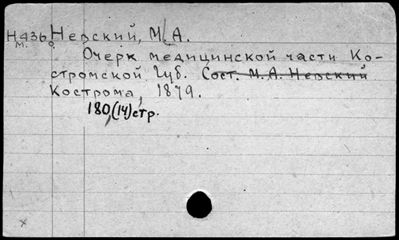 Н436 Невский, М. А.
м.
Очерк медицинской части Ко-
стромской Губ. Сост. М. А. Невский
Кострома, 1879.
180,(14)стр.
х